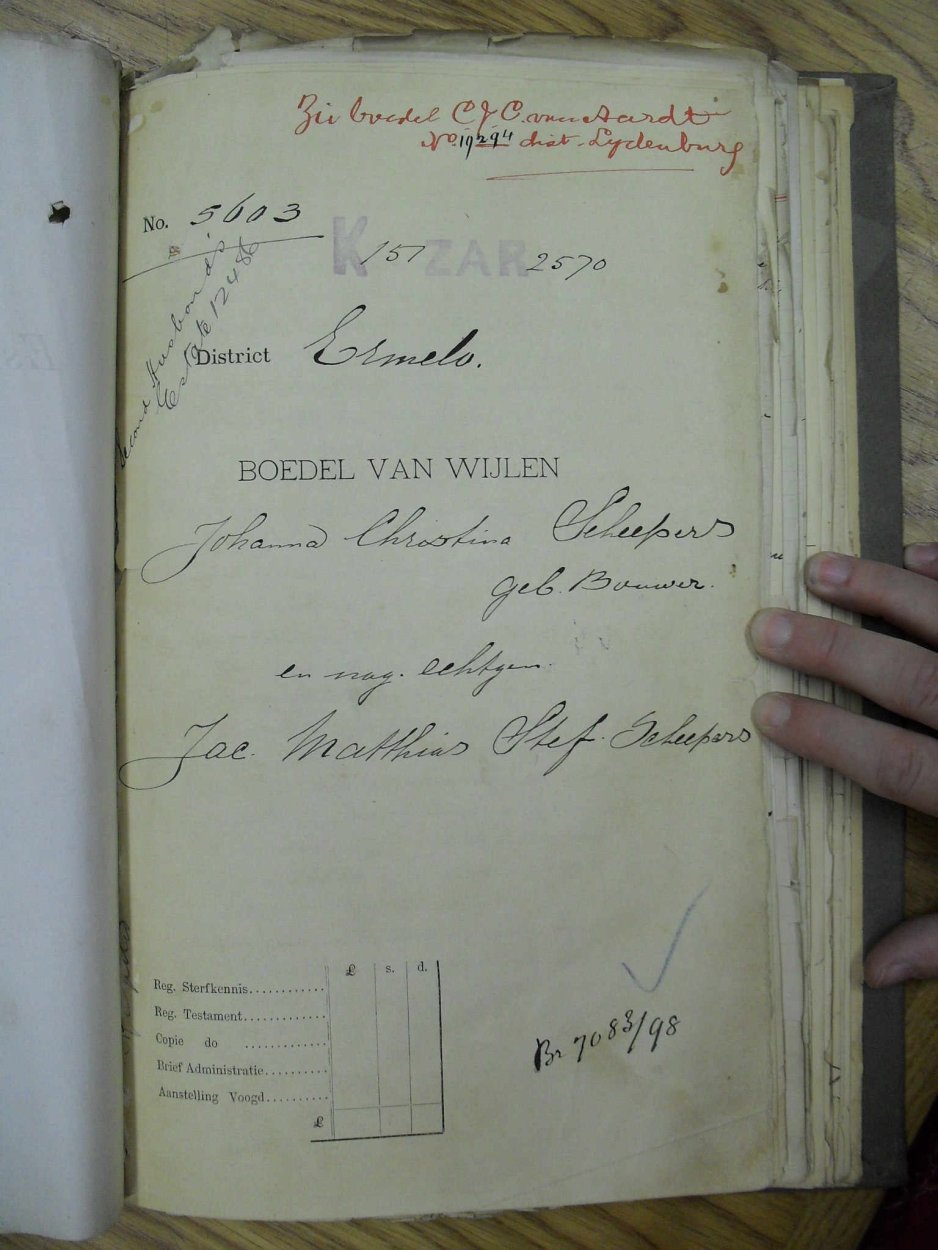 Zie boedel C J C. van Aardt
No. 19294 dist. Lydenburg
No. 5603
K 151 ZAR 2570
Second Husband's
Estate 12486
District Ermelo.
BOEDEL VAN WIJLEN
Johanna Christina Scheepers
geb. Bouwer.
en nag. echtgen.
Jac. Matthias Stef. Scheepers
£ s. d.
Reg. Sterfkennis............
Reg. Testament............
Copie do ............
Brief Administratie..........
Aanstelling Voogd..........
£
Br 7083/98